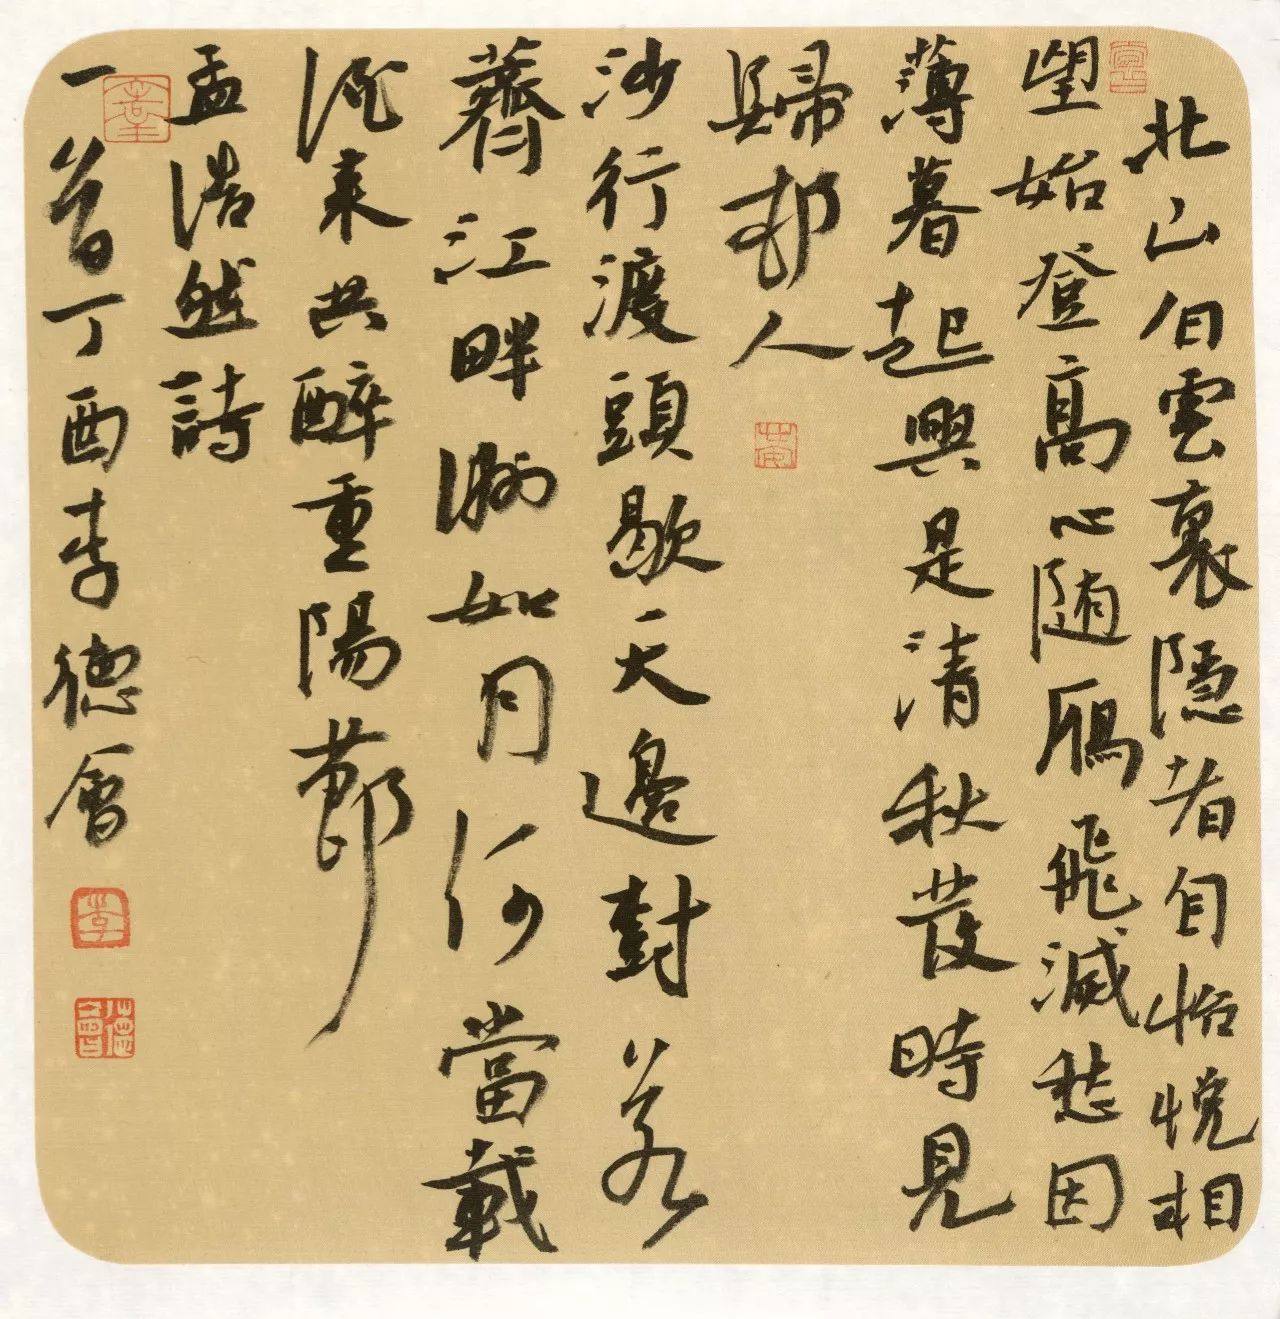 北山白雲裏隱者自怡悅相
望始登高心隨鴈飛滅愁因
薄暮起興是清秋發時見
歸邨人
沙行渡頭歇天邊樹若
薺江畔洲如月何當載
酒來共醉重陽節
孟浩然詩
一首丁酉李德會
李